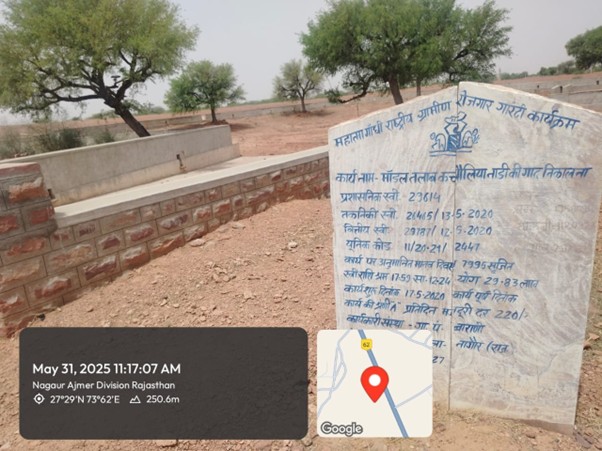 महात्मा गांधी राष्ट्रीय ग्रामीण रोजगार गारंटी कार्यक्रम
कार्य नाम- मॉडल तलाब कचौलिया नाडी की गाद निकालना
प्रशासनिक स्वी - 29614
तकनिकी स्वी 20415/13-5-2020
वित्तीय स्वी- 29187/12-5-2020
यूनिक कोड 11/20-21/2047
कार्य पर अनुमानित मानव दिवस 7995 सृजित
स्वी राशि श्रम 17.59 सा. 12.24 योग 29.83 लाख
कार्य शुरू दिनांक 17.5.2020 कार्य पूर्ण दिनांक
कार्य की प्रतिदिन मजदूरी दर 220/-
कार्यकारी संस्था - ग्रा पं बाराणी
नागौर (राज
27
May 31, 2025 11:17:07 AM
Nagaur Ajmer Division Rajasthan
27°29'N 73°62'E 250.6m
62
Google